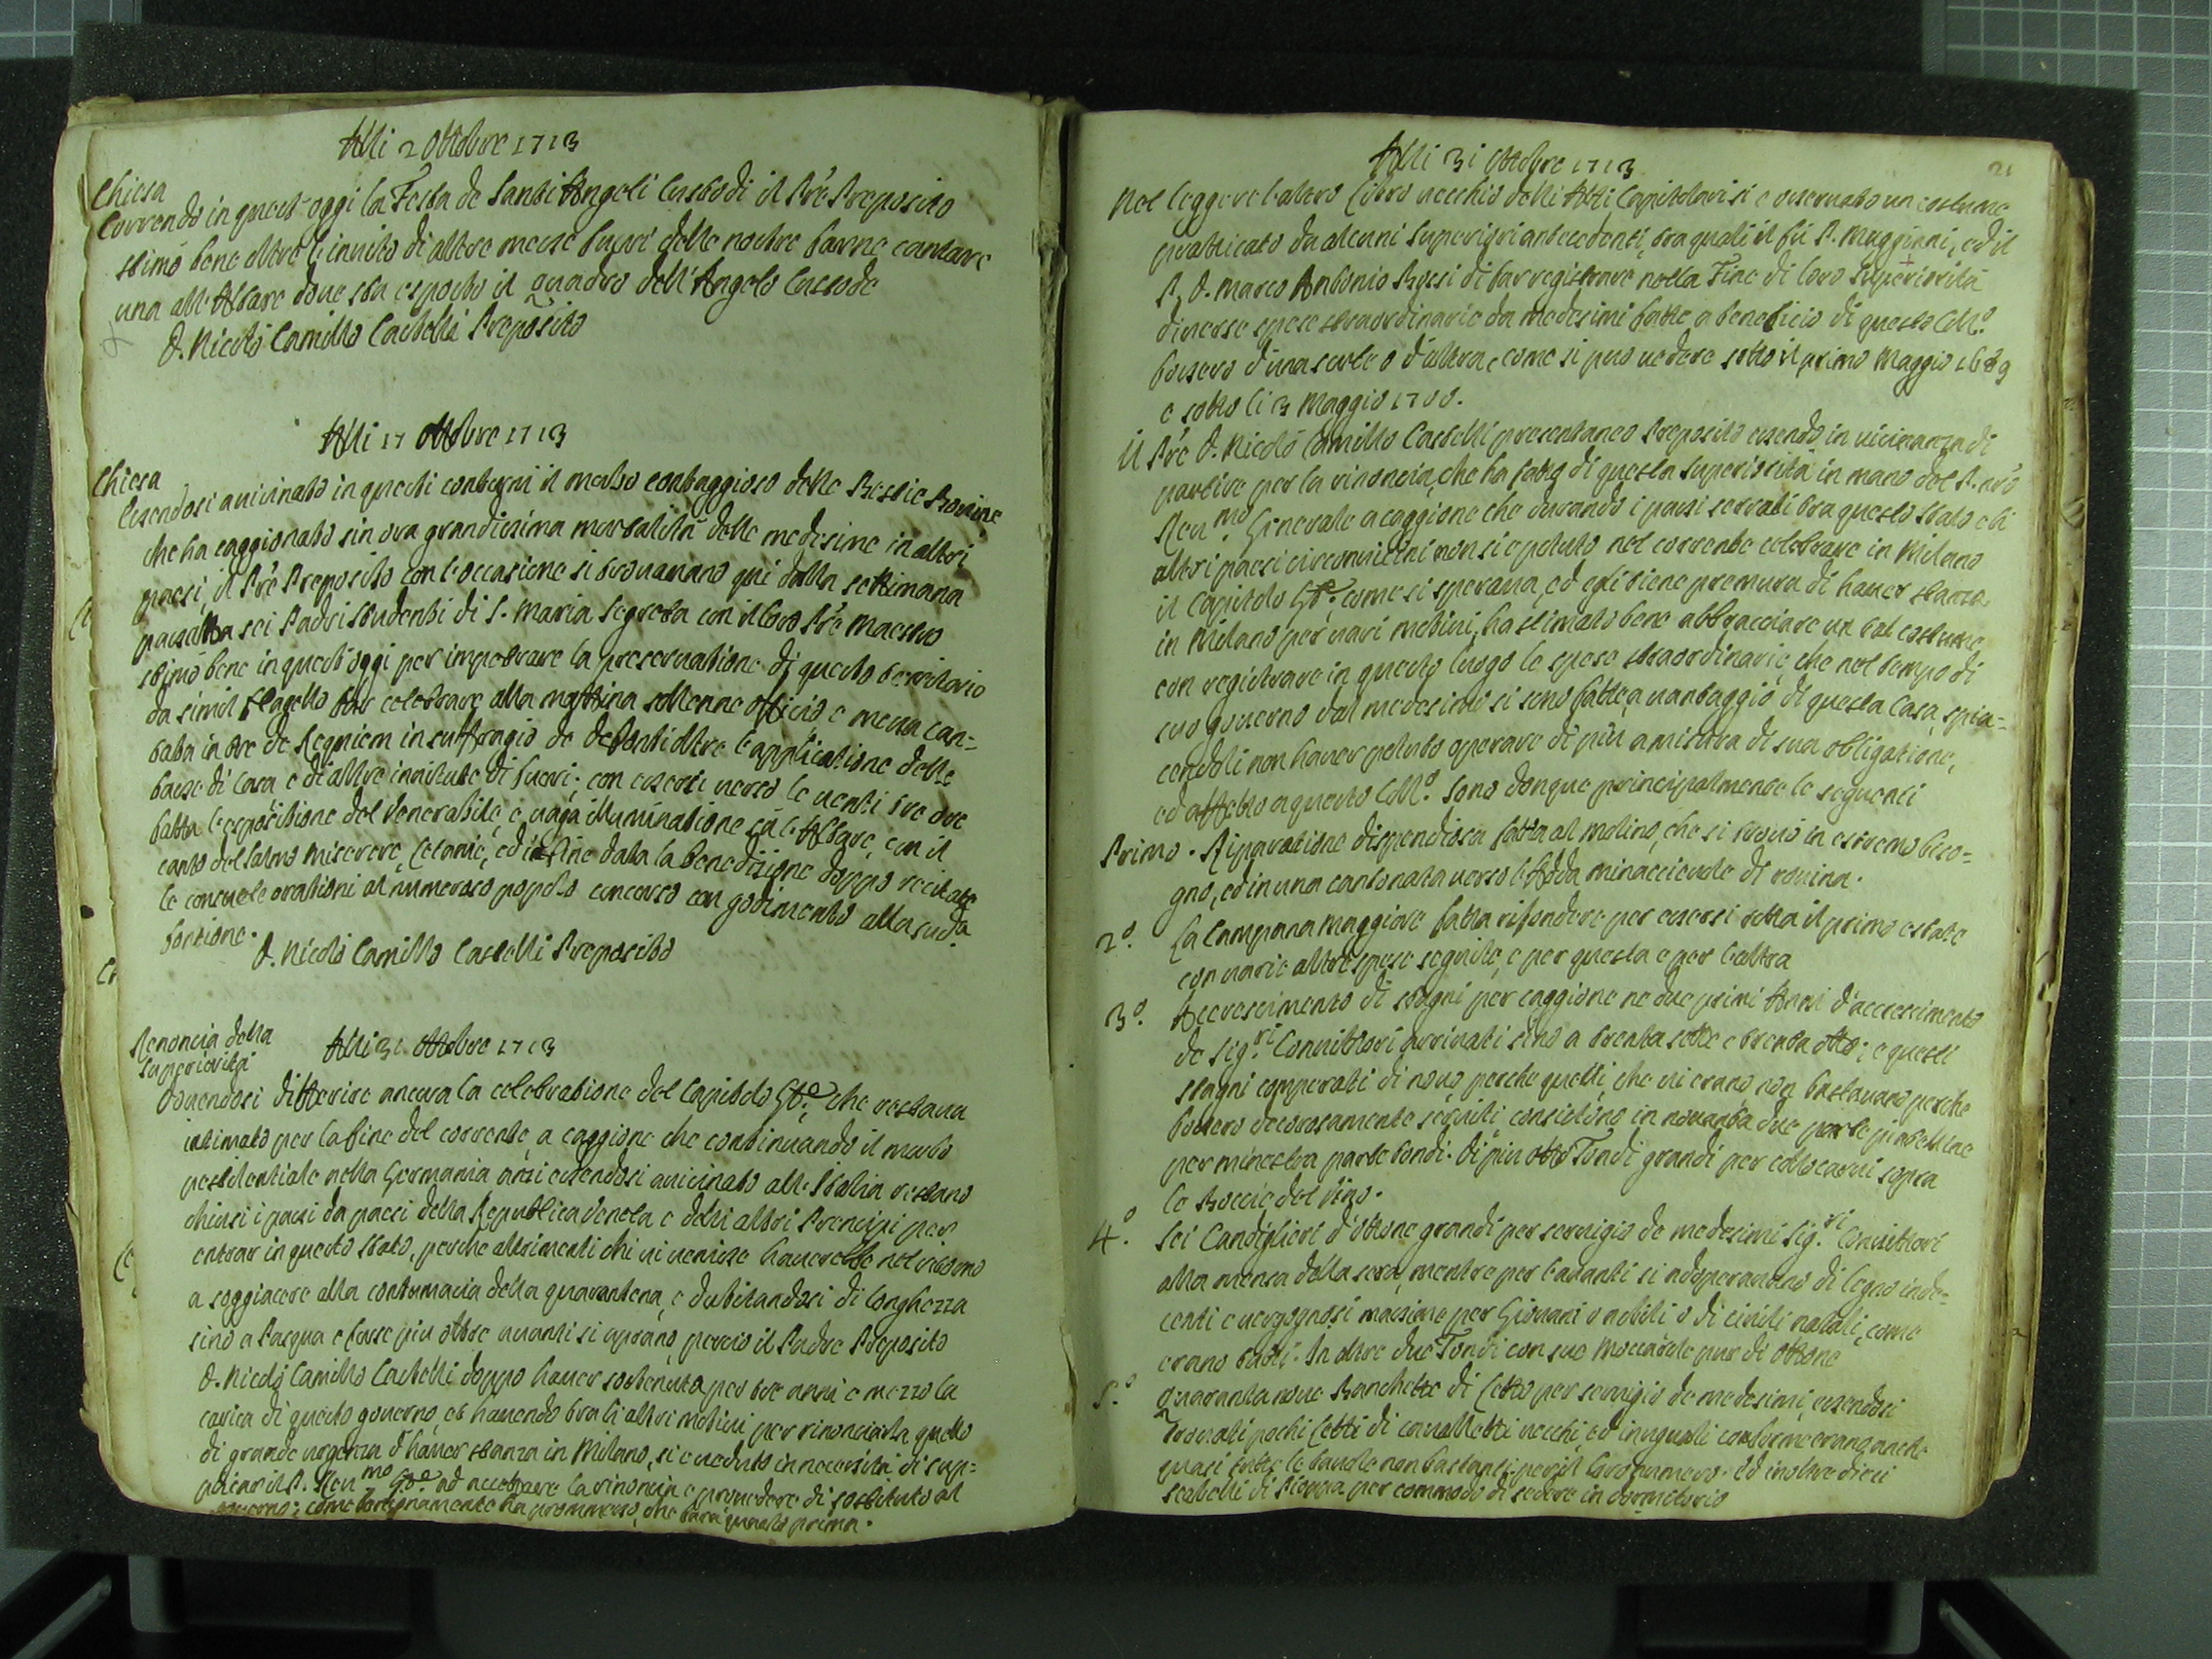 Alli 2 Ottobre 1713
Chiesa
Correndo in quest'oggi la Festa de Santi Angeli Custodi il Pre Preposito
stimò bene oltre l'invito di altre messe fuori delle nostre farne cantare
una all'Altare doue sta esposto il quadro dell'Angelo Custode
D. Nicolò Camillo Castelli Preposito
Alli 17 Ottobre 1713
Chiesa
Essendosi auicinato in questi contorni il morbo contaggioso delle Bestie Bouine
che ha caggionato sin ora grandissima mortalità delle medesime in altri
paesi, il Pre Preposito con l'occasione si trouauano qui dalla settimana
passata sei Padri studenti di S. Maria Segreta con il loro Pre Maestro
stimò bene in quest'oggi per impetrare la preseruatione di questo territorio
da simil flagello far celebrare alla mattina sollenne officio e messa can=
tata in tre de Requiem in suffragio de defonti oltre l'applicatione delle
basse di Casa e di altre inuitate di fuori; con essersi uerso le uenti tre ore
fatta l'espositione del Venerabile, e uaga illuminatione sù l'Altare, con il
canto del salmo Miserere, Letanie, ed in fine data la benedizione doppo recitate
le consuete orationi al numeroso popolo concorso con godimento alla sud.a
fontione.
D. Nicolò Camillo Castelli Preposito
Renoncia della
Superiorità
Alli 31 Ottobre 1713
Douendosi differire ancora la celebratione del Capitolo Gle che restaua
intimato per la fine del corrente, a caggione che continuando il morbo
pestilentiale nella Germania anzi essendosi auicinato all'Italia restano
chiusi i passi da paesi della Republica Veneta e delli altri Prencipi per
entrar in questo stato, perche altrimenti chi ui uenisse hauerebbe nel ritorno
a soggiacere alla contumacia della quarantena, e dubitandosi di longhezza
sino a Pasqua e forse più oltre auanti si aprano, perciò il Padre Preposito
D. Nicolò Camillo Castelli doppo hauer sostenuto per tre anni e mezzo la
carica di questo gouerno, et hauendo fra li altri motiui per rinonciarla quello
di grande urgenza d'hauer stanza in Milano, si è ueduto in necessità di sup=
plicar il P. Reu.mo Gle ad accettare la rinoncia e prouedere di sostituto al
gouerno; come benignamente ha prommesso, che farà quanto prima.
21
Alli 31 Ottobre 1713
Nel leggere l'altro Libro uecchio delli Atti Capitolari si è osseruato un costume
pratticato da alcuni Superiori antecedenti, tra quali il fù P. Maggiani, ed il
P. D. Marco Antonio Rossi di far registrare nella Fine di loro Superiorità
diuerse spese straordinarie da medesimi fatte a beneficio di questo Coll.o
fossero d'una sorte o d'altra, come si può uedere sotto il primo Maggio 1689
e sotto li 3 Maggio 1700.
Il Pre D. Nicolò Camillo Castelli presentaneo Preposito essendo in uicinanza di
partire per la rinoncia, che ha fatto di questa Superiorità in mano del P. nro
Reu.mo Generale a caggione che durando i passi serrati tra questo Stato e li
altri paesi circonuicini non si è potuto nel corrente celebrare in Milano
il Capitolo Gle come si speraua, ed egli tiene premura di hauer stanza
in Milano per uari motiui, ha stimato bene abbracciare un tal costume
con registrare in questo luogo le spese straordinarie, che nel tempo di
suo gouerno dal medesimo si sono fatte a uantaggio di questa Casa, spia=
cendoli non hauer potuto operare di più a misura di sua obligatione,
ed affetto a questo Coll.o Sono donque principalmente le seguenti
Primo. Riparatione dispendiosa fatta al molino, che si trouò in estremo biso=
gno, ed in una cantonata uerso l'Adda minaccieuole di rouina.
2.o La Campana maggiore fatta rifondere per essersi rotta il primo estate
con uarie altre spese seguite, e per questa e per l'altra
3.o Accrescimento di stagni per caggione ne due primi Anni d'accrescimento
de Sig.ri Conuittori arriuati sino a trenta sette e trenta otto; e questi
stagni comperati di nouo, perche quelli, che ui erano non bastauano perche
fossero decorosamente seruiti, consistono in nouanta due parte piatelline
per minestra parte tondi. Di più otto Tondi grandi per collocarui sopra
le Boccie del Vino.
4.o Sei Candiglieri d'ottone grandi per seruigio de medesimi Sig.ri Conuittori
alla mensa della sera, mentre per l'auanti si adoperauano di legno inde=
centi e uergognosi massime per Giouani o nobili o di ciuili natali, come
erano tutti. In oltre due Tondi con sue Moccarole pur di Ottone
5.o Quaranta noue Banchette di Letto per seruigio de medesimi, essendosi
trouati pochi Letti di caualletti uecchi, ed inuguali conforme erano anche
quasi tutte le tauole non bastanti per il loro numero. Ed inoltre dieci
scabelli di Pioppa per commodo di sedere in dormitorio